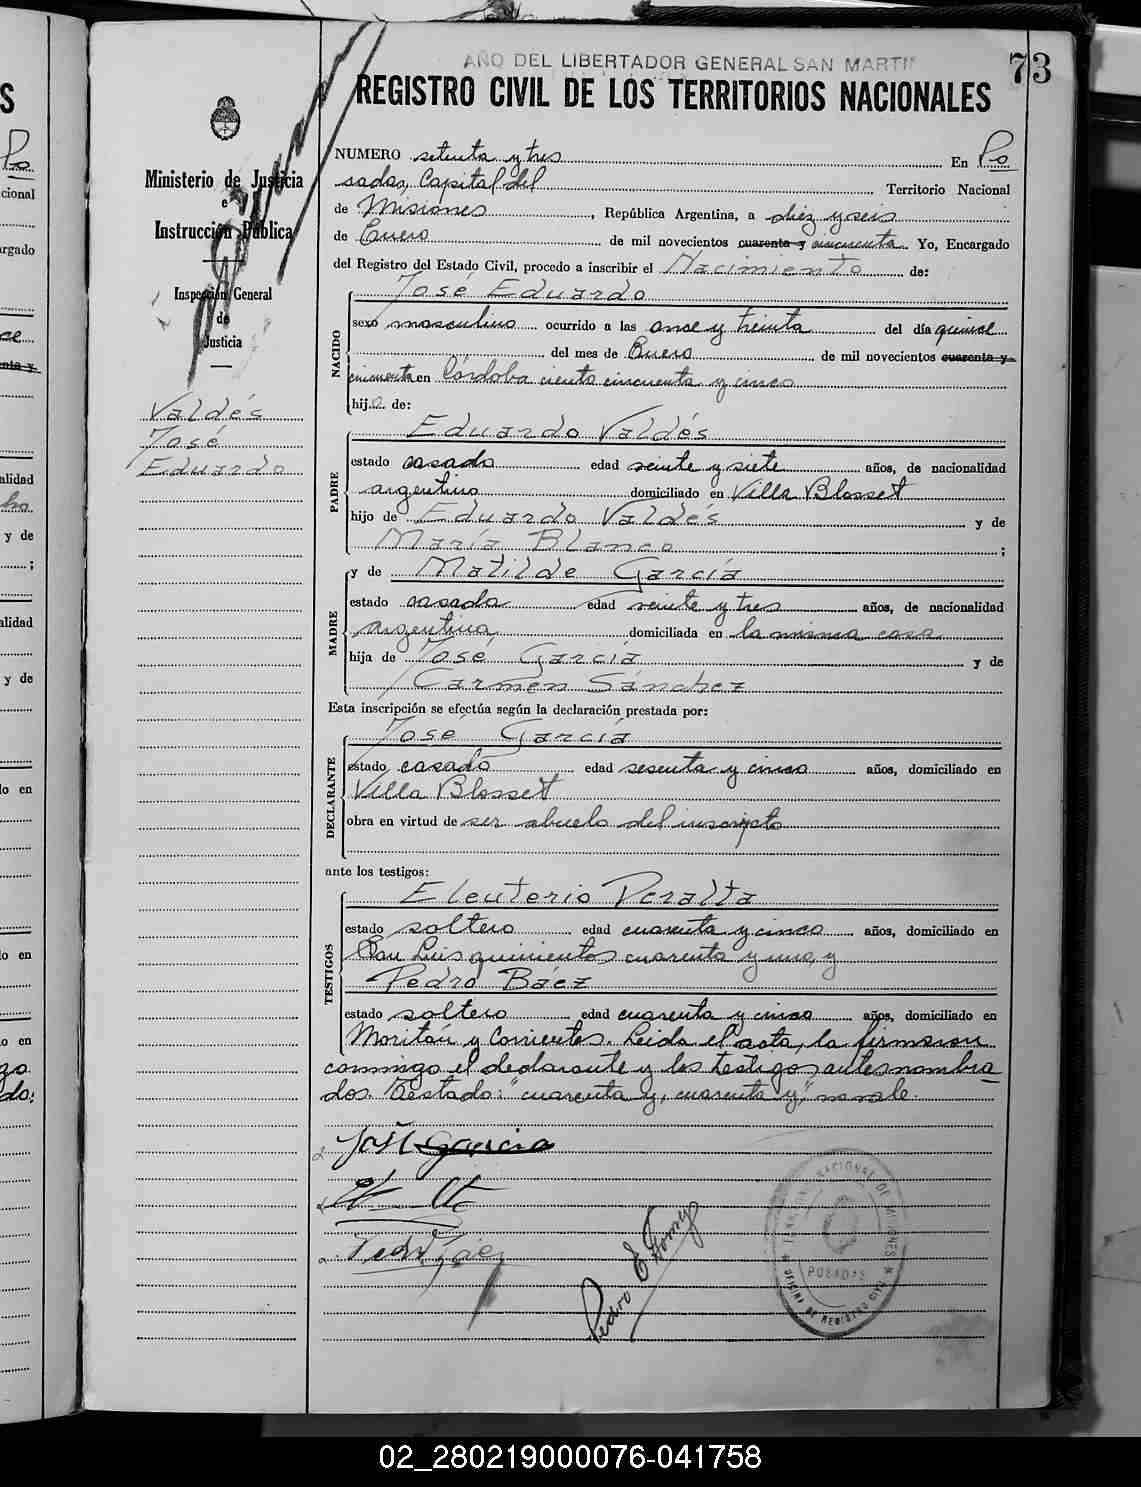 AÑO DEL LIBERTADOR GENERAL SAN MARTIN
73
REGISTRO CIVIL DE LOS TERRITORIOS NACIONALES
Ministerio de Justicia
e
Instrucción Pública
Inspección General
de
Justicia
Valdés
José
Eduardo
NUMERO setenta y tres En Po
sadas, Capital del Territorio Nacional
de Misiones, República Argentina, a diez y seis
de Enero de mil novecientos cuarenta y cincuenta. Yo, Encargado
del Registro del Estado Civil, procedo a inscribir el Nacimiento de:
NACIDO
José Eduardo
sexo masculino ocurrido a las once y treinta del día quince
del mes de Enero de mil novecientos cuarenta y
cincuenta en Córdoba ciento cincuenta y cinco
hijo de:
PADRE
Eduardo Valdés
estado casado edad veinte y siete años, de nacionalidad
argentino domiciliado en Villa Blosset
hijo de Eduardo Valdés y de
María Blanco;
MADRE
y de Matilde García
estado casada edad veinte y tres años, de nacionalidad
argentina, domiciliada en la misma casa
hija de José García y de
Carmen Sánchez
Esta inscripción se efectúa según la declaración prestada por:
DECLARANTE
José García
estado casado edad sesenta y cinco años, domiciliado en
Villa Blosset
obra en virtud de ser abuelo del inscripto
ante los testigos:
TESTIGOS
Eleuterio Peralta
estado soltero edad cuarenta y cinco años, domiciliado en
San Luis quinientos cuarenta y uno, y
Pedro Báez
estado soltero edad cuarenta y cinco años, domiciliado en
Moritán y Corrientes. Leida el acta, la firmaron
conmigo el declarante y los testigos antes nombra
dos. Testado: "cuarenta y, cuarenta y," no vale.
José Garcia
Pedro Báez
Pedro E Gomez
TERRITORIO NACIONAL DE MISIONES
POSADAS
OFICINA DE REGISTRO CIVIL
02_280219000076-041758